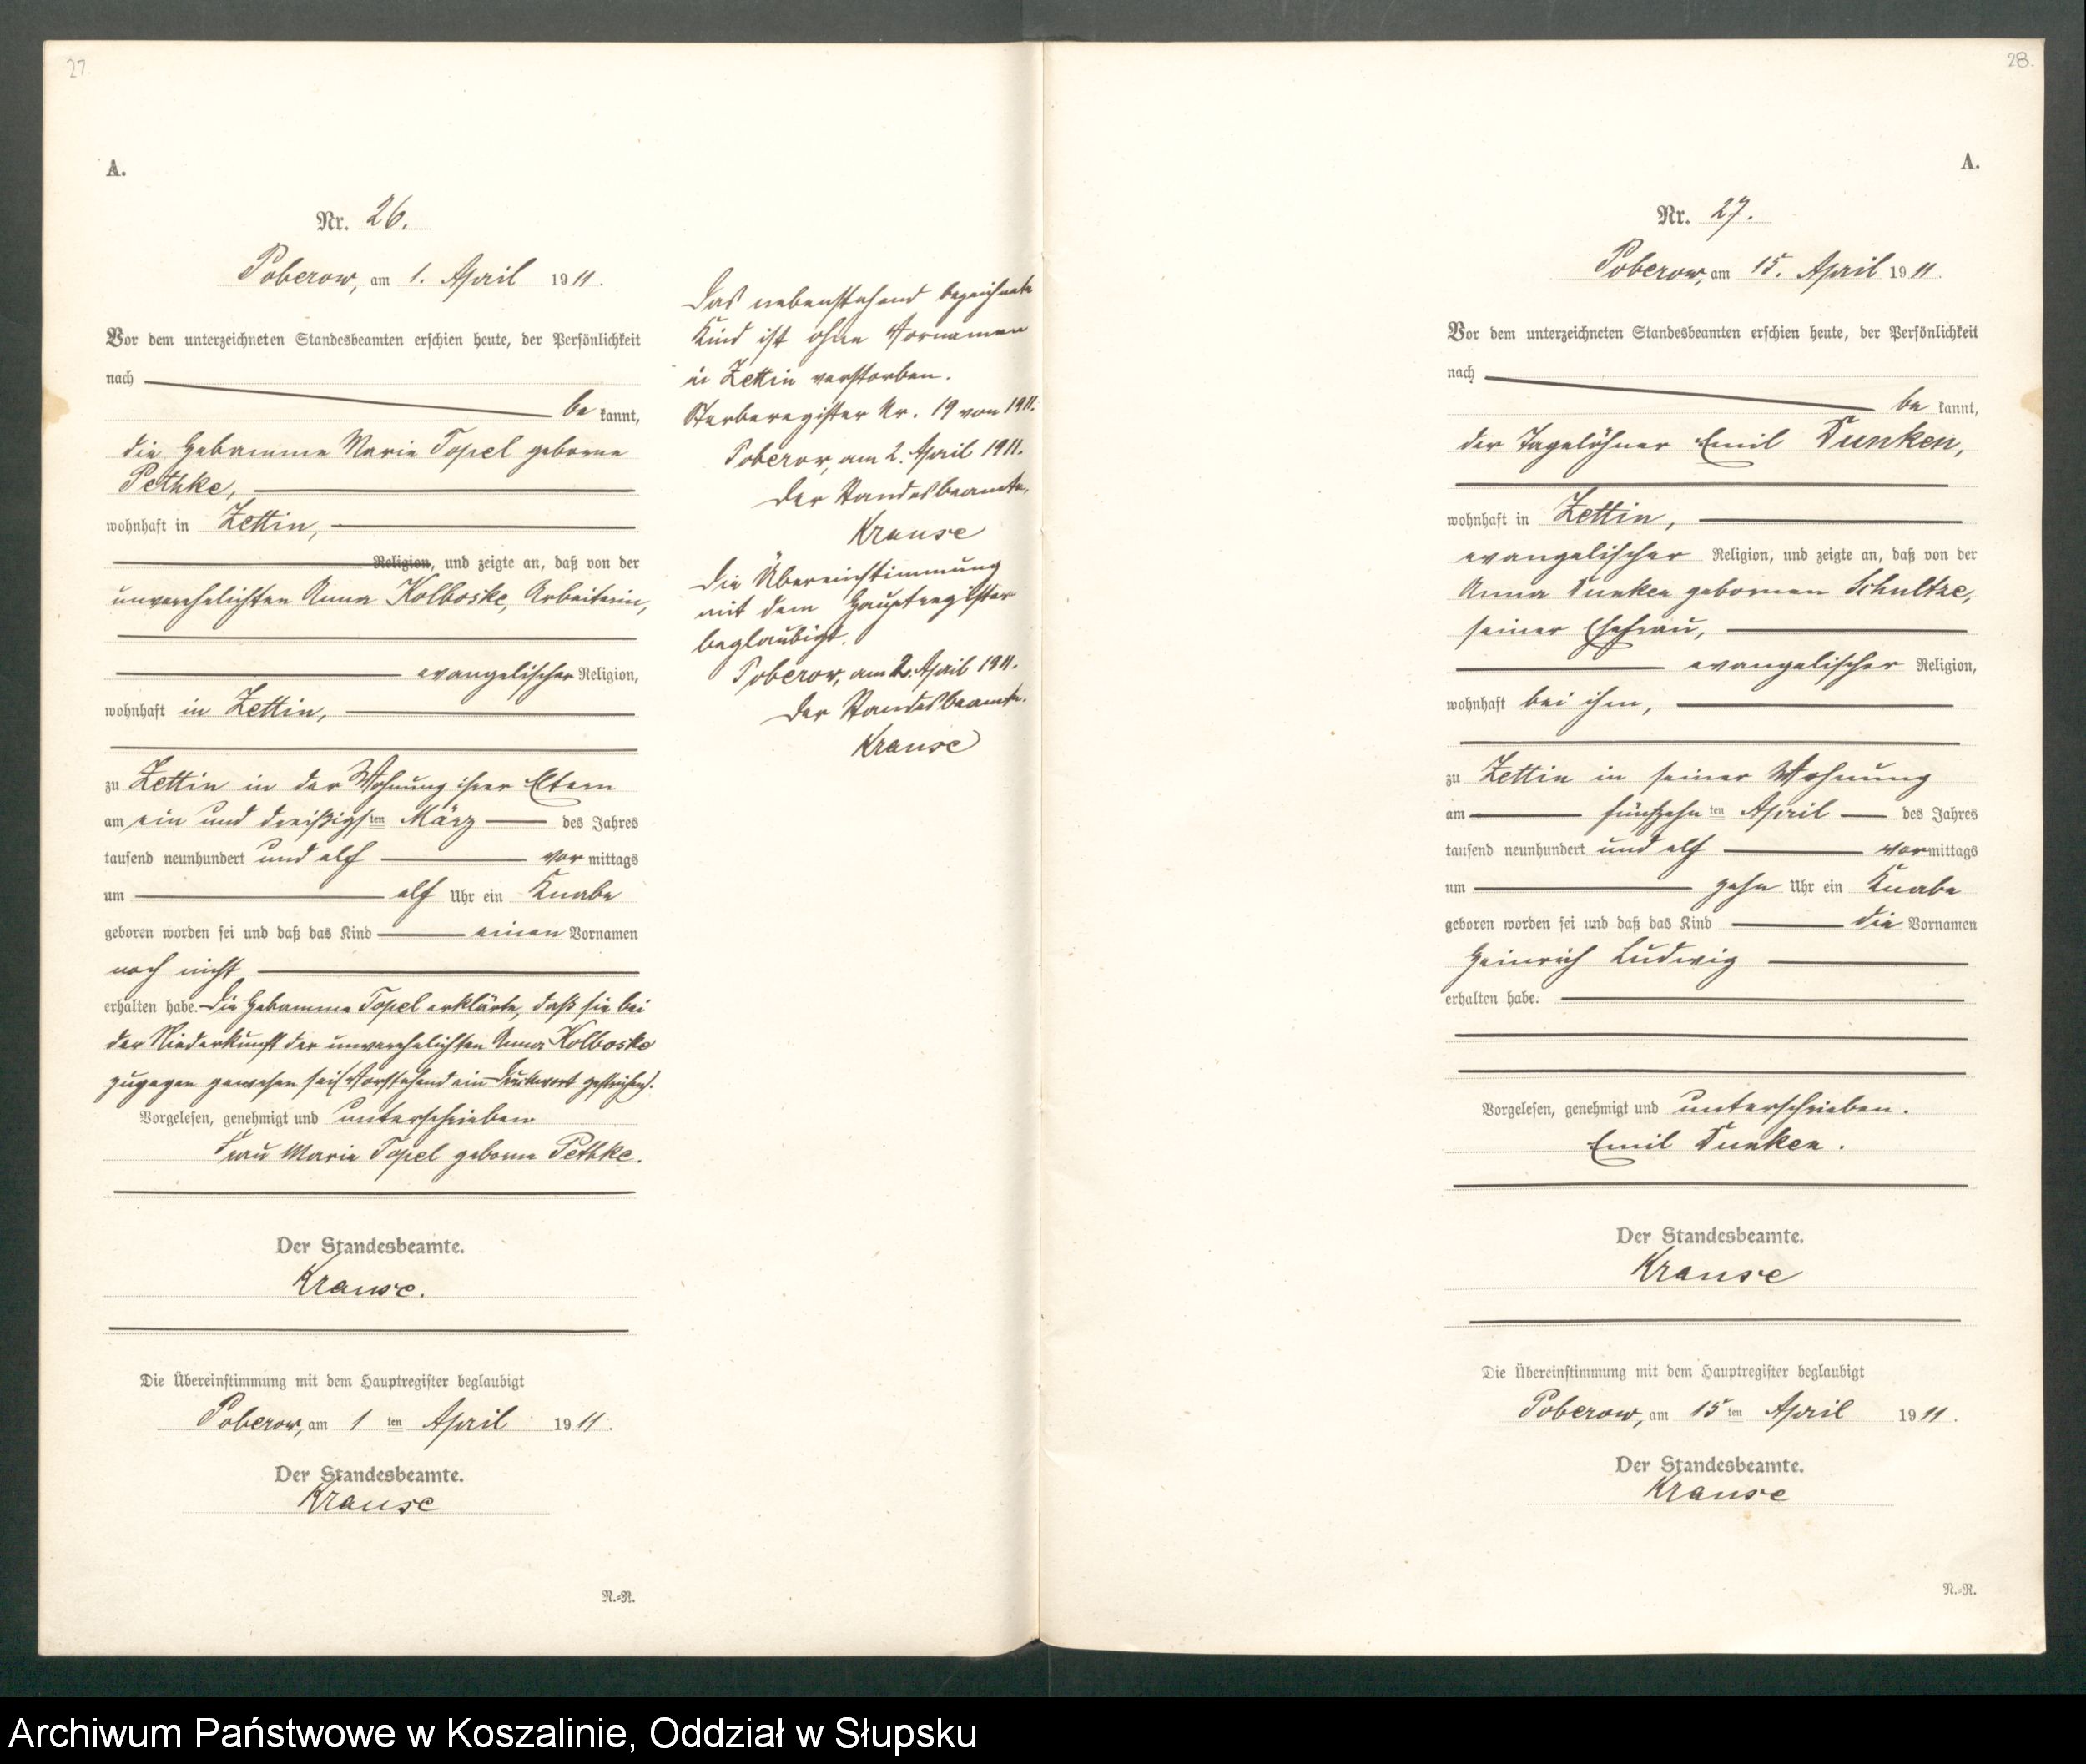 27.
A.
Nr. 26.
Poberow, am 1. April 1911.
Vor dem unterzeichneten Standesbeamten erschien heute, der Persönlichkeit
nach
be kannt,
die Hebamme Marie Topel geborne
Pethke,
wohnhaft in Zettin,
Religion, und zeigte an, daß von der
unverehelichten Anna Kolboske, Arbeiterin,
evangelischer Religion,
wohnhaft in Zettin,
zu Zettin in der Wohnung ihrer Eltern
am ein und dreißigsten März des Jahres
tausend neunhundert und elf vor mittags
um elf Uhr ein Knabe
geboren worden sei und daß das Kind einen Vornamen
noch nicht
erhalten habe. Die Hebamme Topel erklärte, daß sie bei
der Niederkunft der unverehelichten Anna Kolboske
zugegen gewesen sei (Vorstehend ein Druckwort gestrichen).
Vorgelesen, genehmigt und unterschrieben
Frau Marie Topel geborne Pethke.
Der Standesbeamte.
Krause.
Die Übereinstimmung mit dem Hauptregister beglaubigt
Poberow, am 1 ten April 1911.
Der Standesbeamte.
Krause
N.=R.
Das nebenstehend bezeichnete
Kind ist ohne Vornamen
in Zettin verstorben.
Sterberegister Nr. 19 von 1911.
Poberow, am 2. April 1911.
Der Standesbeamte.
Krause
Die Übereinstimmung
mit dem Hauptregister
beglaubigt.
Poberow, am 2. April 1911.
Der Standesbeamte.
Krause
28.
A.
Nr. 27.
Poberow, am 15. April 1911.
Vor dem unterzeichneten Standesbeamten erschien heute, der Persönlichkeit
nach
be kannt,
der Tagelöhner Emil Dunken,
wohnhaft in Zettin,
evangelischer Religion, und zeigte an, daß von der
Anna Dunken gebornen Schultze,
seiner Ehefrau,
evangelischer Religion,
wohnhaft bei ihm,
zu Zettin in seiner Wohnung
am fünfzehn ten April des Jahres
tausend neunhundert und elf vormittags
um zehn Uhr ein Knabe
geboren worden sei und daß das Kind die Vornamen
Heinrich Ludwig
erhalten habe.
Vorgelesen, genehmigt und unterschrieben.
Emil Dunken.
Der Standesbeamte.
Krause
Die Übereinstimmung mit dem Hauptregister beglaubigt
Poberow, am 15 ten April 1911.
Der Standesbeamte.
Krause
N.=R.
Archiwum Państwowe w Koszalinie, Oddział w Słupsku